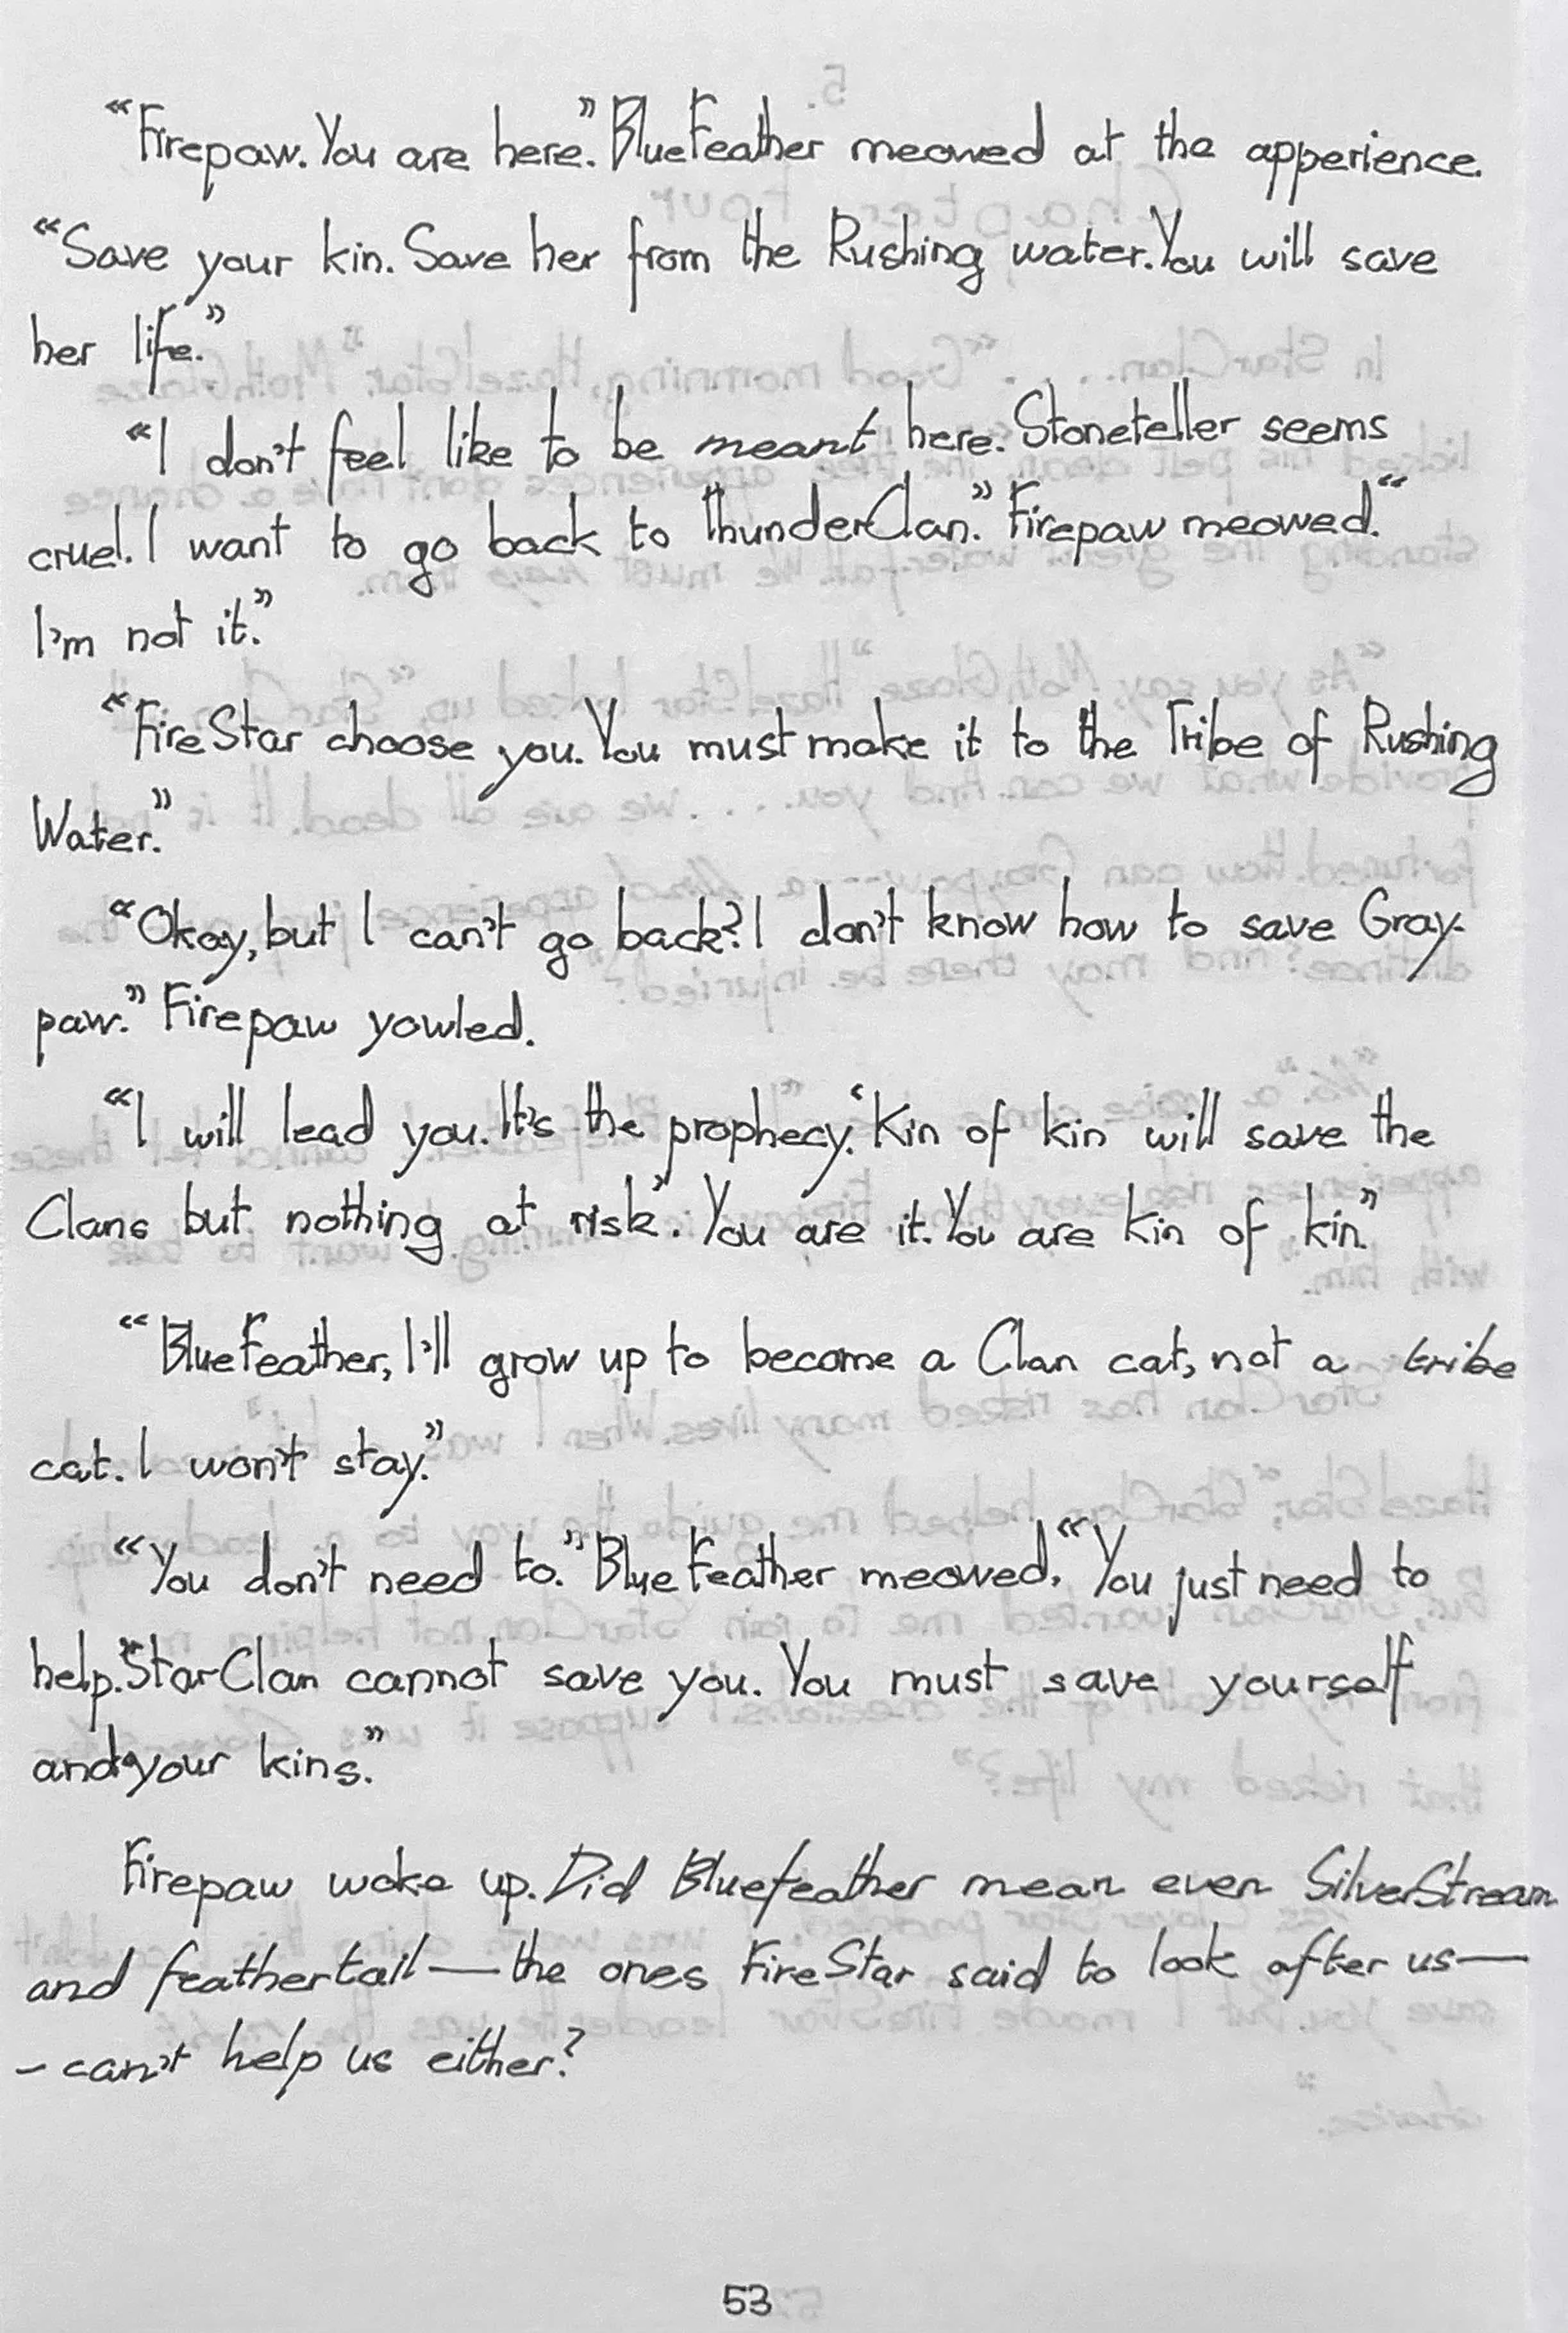 “Firepaw. You are here.” BlueFeather meowed at the apperience.
“Save your kin. Save her from the Rushing water. You will save
her life.”
“I don't feel like to be meant here. Stoneteller seems
cruel. I want to go back to ThunderClan.” Firepaw meowed.“
I'm not it.”
“FireStar choose you. You must make it to the Tribe of Rushing
Water.”
“Okay, but I can't go back? I don't know how to save Gray-
paw.” Firepaw yowled.
“I will lead you. It's the prophecy. ‘Kin of kin will save the
Clans but nothing at risk’. You are it. You are kin of kin.”
“BlueFeather, I'll grow up to become a Clan cat, not a tribe
cat. I won't stay.”
“You don't need to.” BlueFeather meowed. “You just need to
help.”StarClan cannot save you. You must save yourself
and your kins.”
Firepaw woke up. Did Bluefeather mean even SilverStream
and feathertail—the ones FireStar said to look after us—
- can't help us either?
53